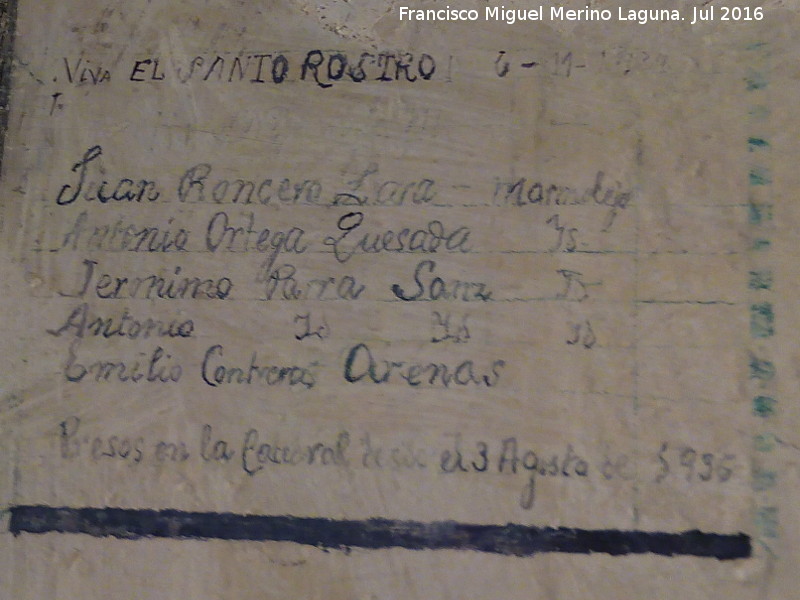 Francisco Miguel Merino Laguna. Jul 2016
VIVA EL SANTO ROSTRO 6-11-
Juan Roncero Lara - Marmolejo
Antonio Ortega Quesada Id
Jermimo Parra Sanz Id
Antonio Id Id Id
Emilio Contreras Arenas
Presos en la Catedral desde el 3 Agosto de 1936